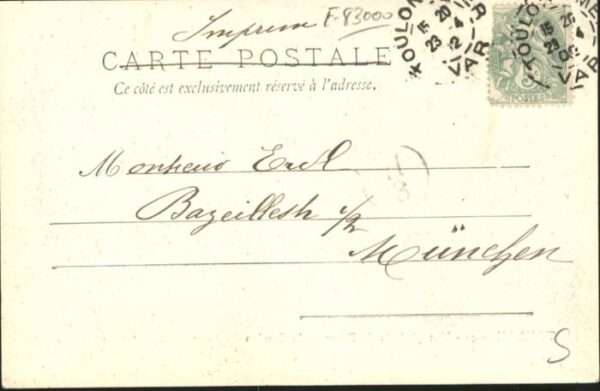 Imprimé F-83000
CARTE POSTALE
Ce côté est exclusivement réservé à l'adresse.
TOULON
15
23
VAR
TOULON
15
23
VAR
POSTES
Monsieur
Bazeillesstr
München
S